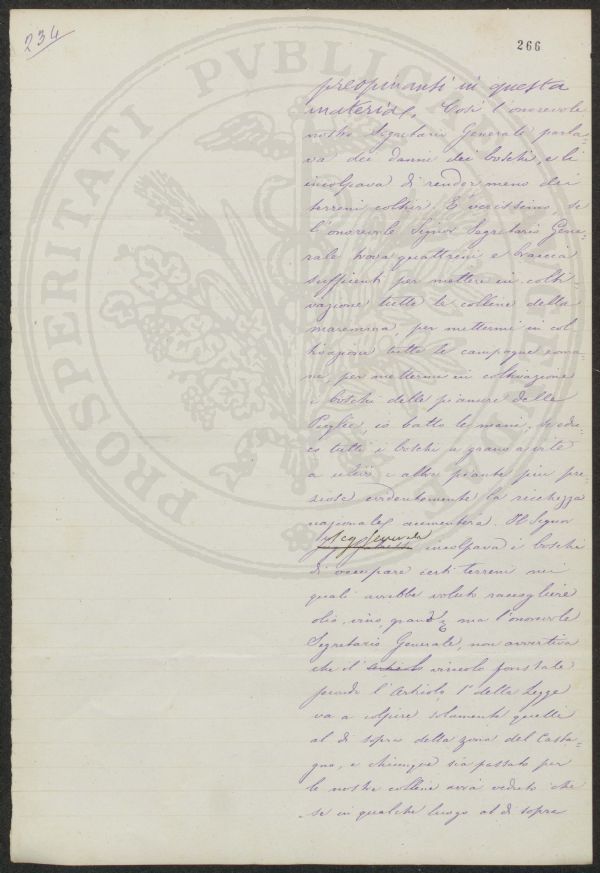 234
266
preopinanti in questa
materia. Così l'onorevole
nostro Segretario Generale parla-
va dei danni dei boschi, e li
incolpava di render meno dei
terreni coltivi. È verissimo, se
l'onorevole Signor Segretario Gene-
rale trova quattrini e braccia
sufficienti per mettere in colti-
vazione tutte le colline della
maremma, per mettermi in col
tivazione tutte le campagne roma
ne, per mettermi in coltivazione
i boschi delle pianure delle
Puglie, io batto le mani,
tutti i boschi a grano a vite
a ulivi e altre piante più pre
ziose evidentemente la ricchezza
nazionale aumenterà. Il Signor
Seg. Generale incolpava i boschi
di occupare certi terreni nei
quali avrebbe voluto raccogliere
olio, vino, grano, ma l'onorevole
Segretario Generale, non avvertiva
che il vincolo forestale
l'Articolo 1° della Legge
va a colpire solamente quelli
al di sopra della zona del Casta-
gno, e chiunque sia passato per
le nostre colline avrà veduto che
se in qualche luogo al di sopra
PROSPERITATI PVBLICAE